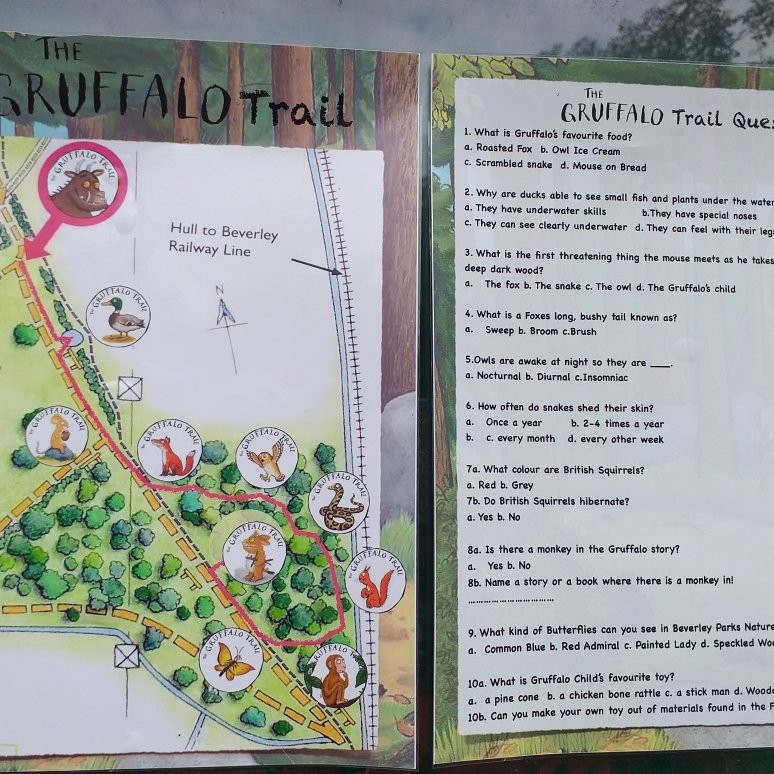 THE
GRUFFALO Trail
THE GRUFFALO TRAIL
Hull to Beverley
Railway Line
N
THE GRUFFALO TRAIL
THE GRUFFALO TRAIL
THE GRUFFALO TRAIL
THE GRUFFALO TRAIL
THE GRUFFALO TRAIL
THE GRUFFALO TRAIL
THE GRUFFALO TRAIL
THE GRUFFALO TRAIL
THE GRUFFALO TRAIL
THE
GRUFFALO Trail Ques
1. What is Gruffalo's favourite food?
a. Roasted Fox b. Owl Ice Cream
c. Scrambled snake d. Mouse on Bread
2. Why are ducks able to see small fish and plants under the water
a. They have underwater skills b.They have special noses
c. They can see clearly underwater d. They can feel with their legs
3. What is the first threatening thing the mouse meets as he takes
deep dark wood?
a. The fox b. The snake c. The owl d. The Gruffalo's child
4. What is a Foxes long, bushy tail known as?
a. Sweep b. Broom c.Brush
5.Owls are awake at night so they are ____.
a. Nocturnal b. Diurnal c.Insomniac
6. How often do snakes shed their skin?
a. Once a year b. 2-4 times a year
b. c. every month d. every other week
7a. What colour are British Squirrels?
a. Red b. Grey
7b. Do British Squirrels hibernate?
a. Yes b. No
8a. Is there a monkey in the Gruffalo story?
a. Yes b. No
8b. Name a story or a book where there is a monkey in!
..............................
9. What kind of Butterflies can you see in Beverley Parks Nature
a. Common Blue b. Red Admiral c. Painted Lady d. Speckled Woo
10a. What is Gruffalo Child's favourite toy?
a. a pine cone b. a chicken bone rattle c. a stick man d. Woode
10b. Can you make your own toy out of materials found in the F